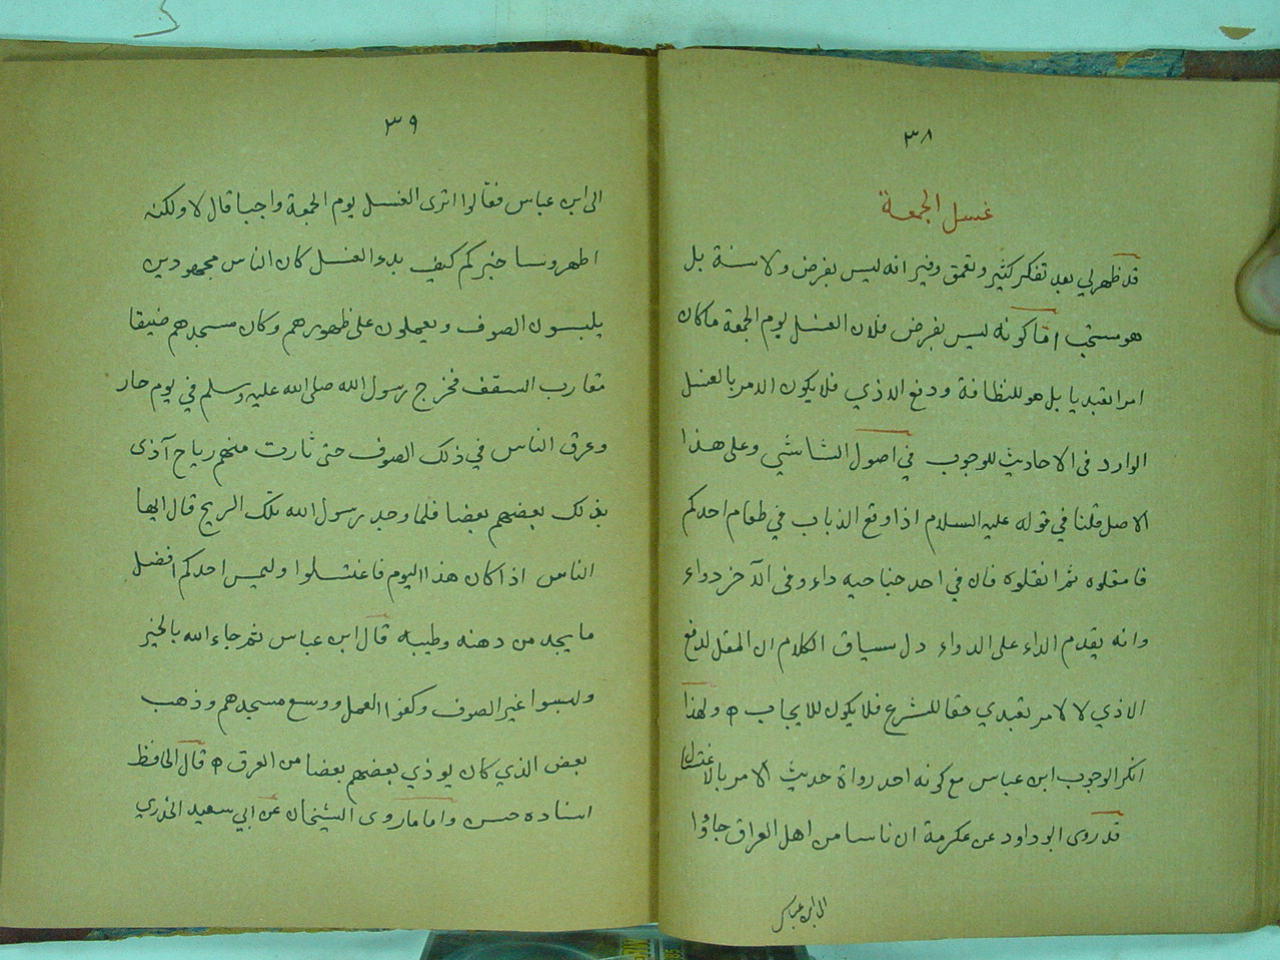 ٣٨
غسل الجمعة
قد ظهر لي بعد تفكر كثير وتعمق وفير انه ليس بفرض ولا سنة بل
هو مستحب اما كونه ليس بفرض فلان الغسل يوم الجمعة ما كان
امرا تعبديا بل هو للنظافة ودفع الاذي فلا يكون الامر بالغسل
الوارد فى الاحاديث للوجوب في اصول الشاشي وعلى هذا
الاصل قلنا في قوله عليه السلام اذا وقع الذباب في طعام احدكم
فامقلوه ثم انقلوه فان في احد جناحيه داء وفى الآخر دواء
وانه يقدم الداء على الدواء دل سياق الكلام ان المقل لدفع
الاذي لا لامر تعبدي حقا للشرع فلا يكون للايجاب ه ولهذا
انكر الوجوب ابن عباس مع كونه احد رواة حديث الامر بالاغتسال
قد روى ابو داود عن عكرمة ان ناسا من اهل العراق جاؤا
الى ابن عباس
٣٩
الى ابن عباس فقالوا اترى الغسل يوم الجمعة واجبا قال لا ولكنه
اطهر وسا خبركم كيف بدء الغسل كان الناس مجهودين
يلبسون الصوف ويعملون على ظهورهم وكان مسجدهم ضيقا
مقارب السقف فخرج رسول الله صلى الله عليه وسلم في يوم حار
وعرق الناس في ذلك الصوف حتى ثارت منهم رياح آذى
بذلك بعضهم بعضا فلما وجد رسول الله تلك الريح قال ايها
الناس اذا كان هذا اليوم فاغتسلوا وليمس احدكم افضل
ما يجد من دهنه وطيبه قال ابن عباس ثم جاء الله بالخير
ولبسوا غير الصوف وكفوا العمل ووسع مسجدهم وذهب
بعض الذي كان يوذي بعضهم بعضا من العرق ه قال الحافظ
اسناده حسن واما ما روى الشيخان عن ابي سعيد الخدري